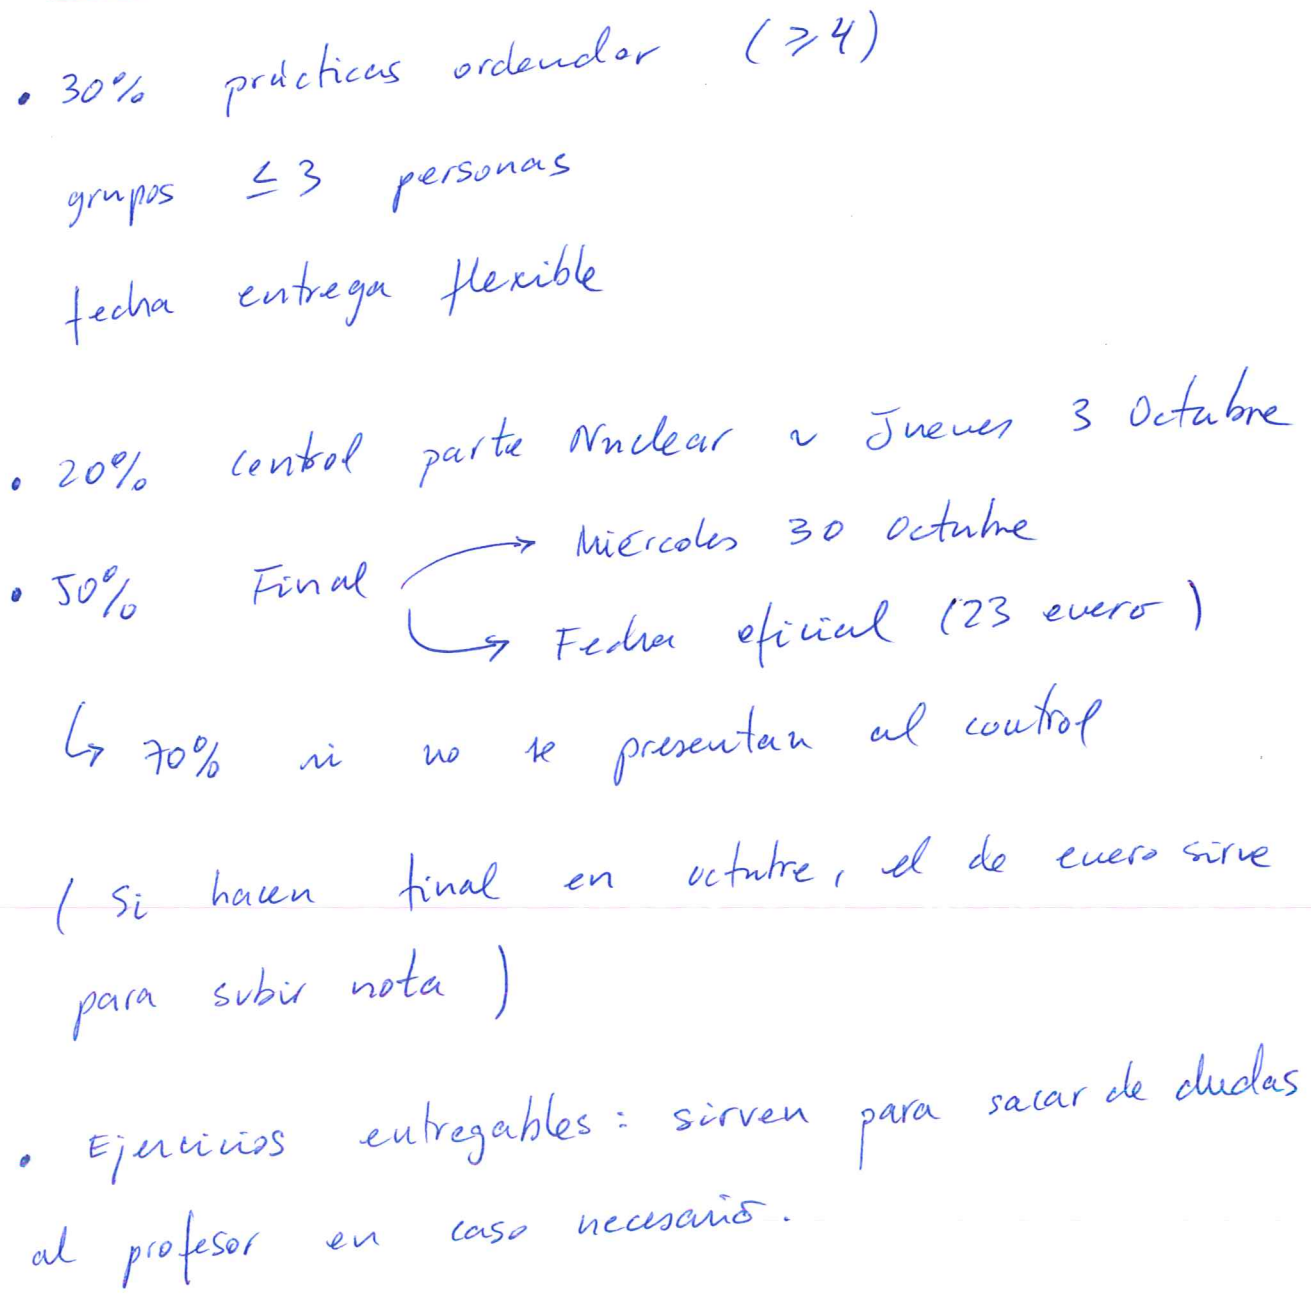 • 30% prácticas ordenador (⩾4)
grupos ≤3 personas
fecha entrega flexible
• 20% control parte Nuclear ~ Jueves 3 Octubre
• 50% Final → Miércoles 30 octubre
→ Fecha oficial (23 enero)
↳ 70% si no se presentan al control
(Si hacen final en octubre, el de enero sirve
para subir nota)
• Ejercicios entregables: sirven para sacar de dudas
al profesor en caso necesario.